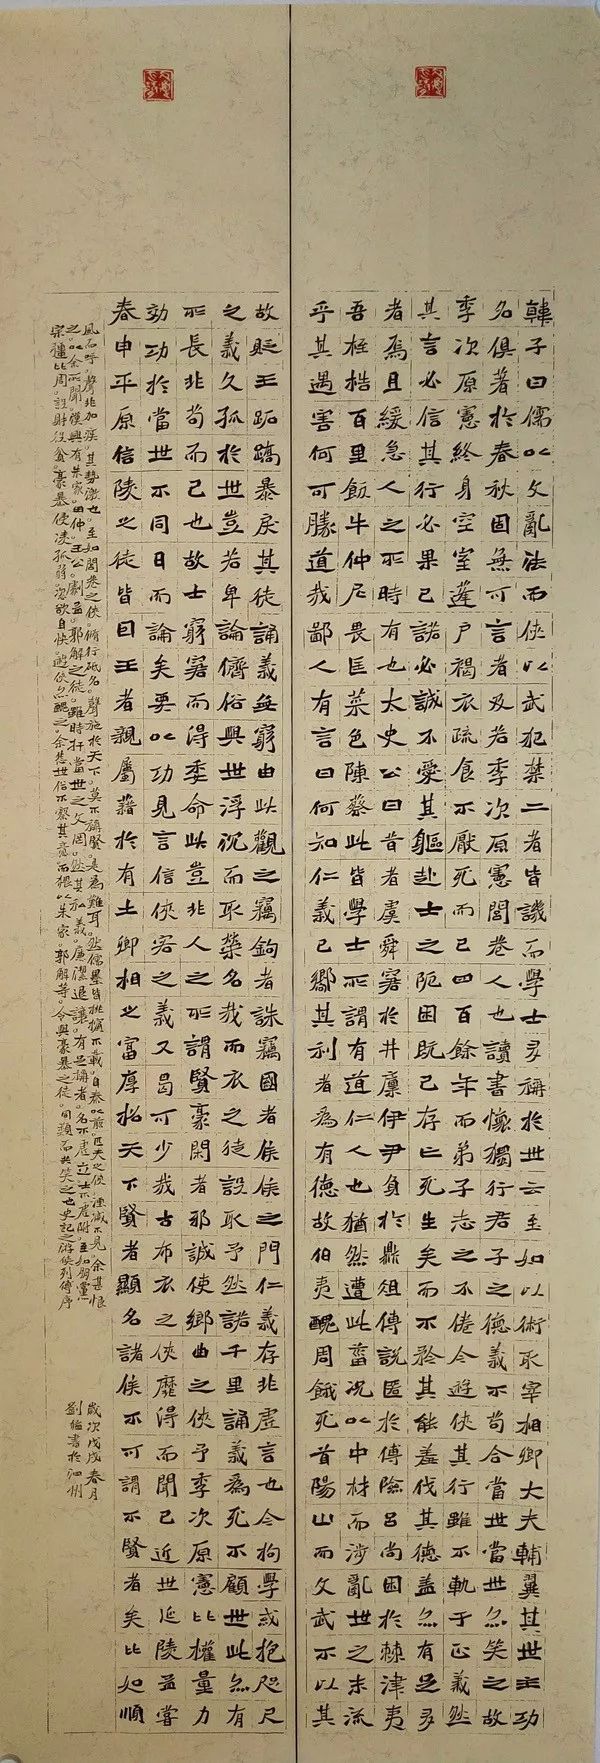 韓子曰儒以文亂法而俠以武犯禁二者皆譏而學士多稱於世云至如以術取宰相卿大夫輔翼其世主功
名俱著於春秋固無可言者及若季次原憲閭巷人也讀書懷獨行君子之德義不苟合當世當世亦笑之故
季次原憲終身空室蓬戶褐衣疏食不厭死而已四百餘年而弟子志之不倦今遊俠其行雖不軌于正義然
其言必信其行必果已諾必誠不愛其軀赴士之阨困既已存亡死生矣而不矜其能羞伐其德蓋亦有足多
者焉且緩急人之所時有也太史公曰昔者虞舜窘於井廩伊尹負於鼎俎傳說匿於傅險呂尚困於棘津夷
吾桎梏百里飯牛仲尼畏匡菜色陳蔡此皆學士所謂有道仁人也猶然遭此菑況以中材而涉亂世之末流
乎其遇害何可勝道哉鄙人有言曰何知仁義已嚮其利者為有德故伯夷醜周餓死首陽山而文武不以其
故貶王跖蹻暴戾其徒誦義無窮由此觀之竊鉤者誅竊國者侯侯之門仁義存非虛言也今拘學或抱咫尺
之義久孤於世豈若卑論儕俗與世浮沉而取榮名哉而衣之徒設取予然諾千里誦義為死不顧世此亦有
所長非苟而已也故士窮窘而得委命此豈非人之所謂賢豪閒者邪誠使鄉曲之俠予季次原憲比權量力
効功於當世不同日而論矣要以功見言信俠客之義又曷可少哉古布衣之俠靡得而聞已近世延陵孟嘗
春申平原信陵之徒皆因王者親屬藉於有土卿相之富厚招天下賢者顯名諸侯不可謂不賢者矣比如順
風而呼。聲非加疾。其勢激也。至如閭巷之俠。脩行砥名。聲施於天下。莫不稱賢。是為難耳。然儒墨皆排擯不載。自秦以前。匹夫之俠。湮滅不見。余甚恨
之。以余所聞。漢興有朱家。田仲。王公。劇孟。郭解之徒。雖時扞當世之文罔。然其私義。廉潔退讓。有足稱者。名不虛立。士不虛附。至如朋黨
宗彊比周。設財役貧。豪暴侵凌孤弱。恣欲自快。遊俠亦醜之。余悲世俗不察其意。而猥以朱家。郭解等。令與豪暴之徒。同類而共笑之也史記之游俠列傳序
歲次戊戌春月
劉書於泗州